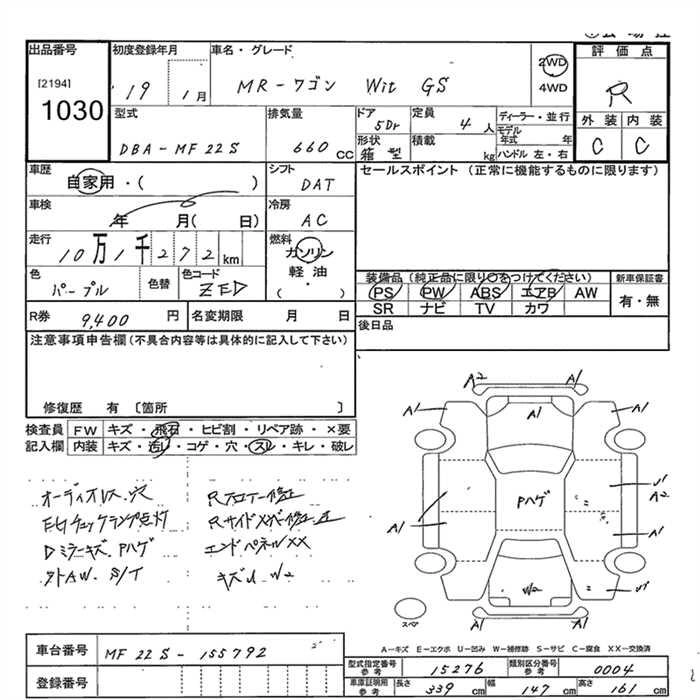 出品番号 初度登録年月 車名・グレード 評価点
[2194]
1030
19 1月 MR-ワゴン Wit GS 2WD 4WD R
型式 排気量 ドア 定員 ディーラー・並行 外装 内装
DBA-MF22S 660cc 5Dr 4人 モデル年式 年 C C
形状 箱型 積載 kg ハンドル 左・右
車歴 シフト セールスポイント (正常に機能するものに限ります)
自家用・( ) DAT
車検 冷房
年 月( 日) AC
走行 燃料
10万1千272km ガソリン
軽油
( )
色 色替 色コード
パープル ZED
装備品(純正品に限り○をつけてください) 新車保証書
PS PW ABS エアB AW 有・無
SR ナビ TV カワ
R券 9,400円 名変期限 月 日 後日品
注意事項申告欄(不具合内容等は具体的に記入して下さい)
修復歴 有 〔箇所 〕
検査員 FW キズ・飛石・ヒビ割・リペア跡・×要
記入欄 内装 キズ・汚レ・コゲ・穴・スレ・キレ・破レ
オーディオレス、穴
Dミラーキズ、Pハゲ
エンドパネルXX
キズU W2
A2 A1
A1 A1 A1
A2
Pハゲ
A1 A1
W2
スペア
A1 A1
A-キズ E-エクボ U-凹み W-補修跡 S-サビ C-腐食 XX-交換済
車台番号 MF22S-155792
登録番号
型式指定番号参考 15276 類別区分番号参考 0004
車庫証明用参考 長さ 339cm 幅 147cm 高さ 161cm